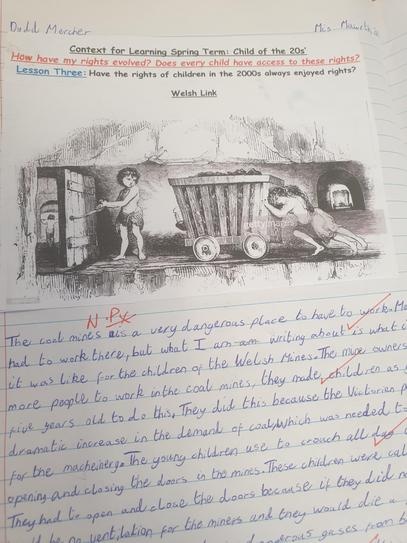 Dudil Mercher Mis.
Context for Learning Spring Term: Child of the 20s'
How have my rights evolved? Does every child have access to these rights?
Lesson Three: Have the rights of children in the 2000s always enjoyed rights?
Welsh Link
N.P
The coal mines is a very dangerous place to have to work.
had to work there, but what I am am writing about is what
it was like for the children of the Welsh Mines. The mine owners
more people to work in the coal mines, they made children as
five years old to do this. They did this because the Victorian
dramatic increase in the demand of coal which was needed
for the macheinerg. The young children use to crouch all day
opening and closing the doors in the mines. These children were
They had to open and clout the doors because if they did
be no ventilation for the miners and they would die a
gases from